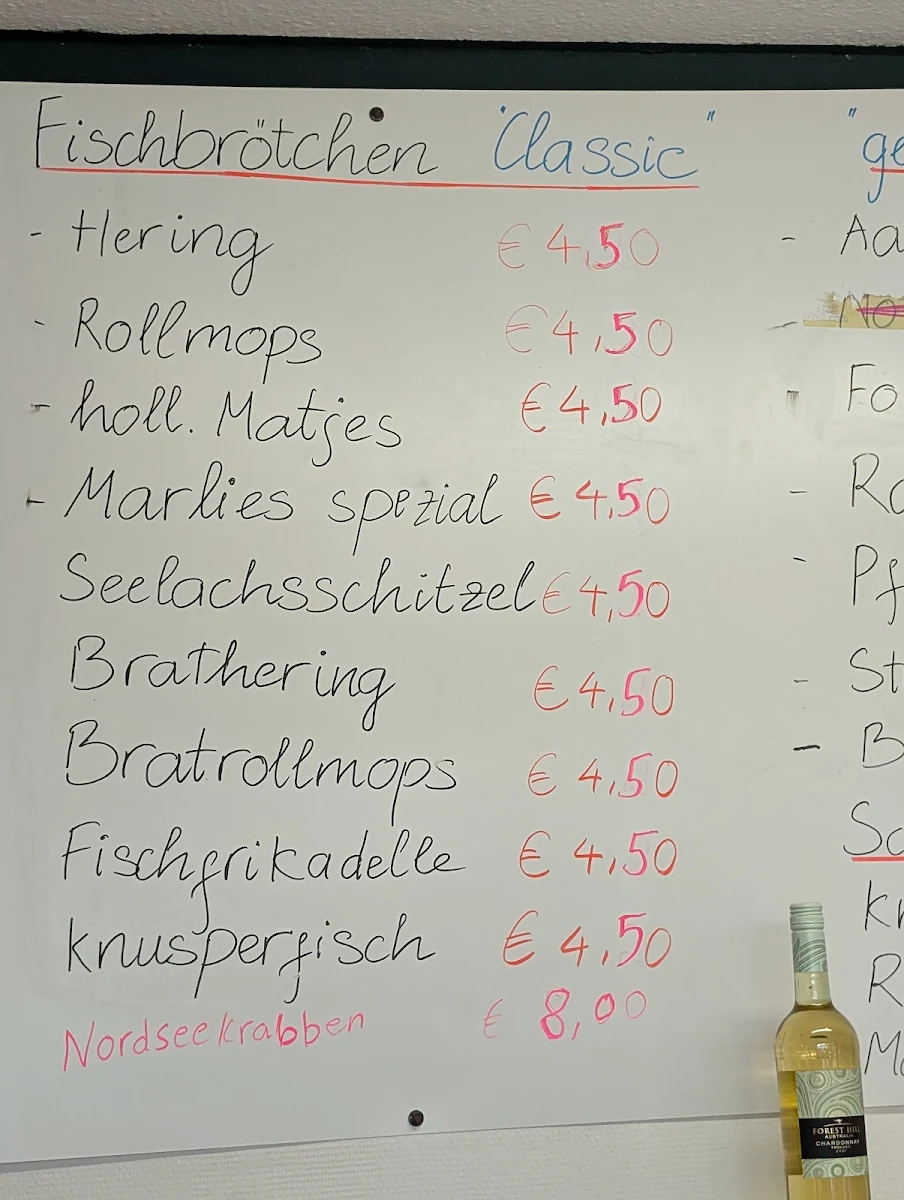 Fischbrötchen "Classic"
- Hering € 4,50
- Rollmops € 4,50
- holl. Matjes € 4,50
- Marlies spezial € 4,50
Seelachsschitzel € 4,50
Brathering € 4,50
Bratrollmops € 4,50
Fischfrikadelle € 4,50
knusperfisch € 4,50
Nordseekrabben € 8,00
FOREST HILL
AUSTRALIA
CHARDONNAY